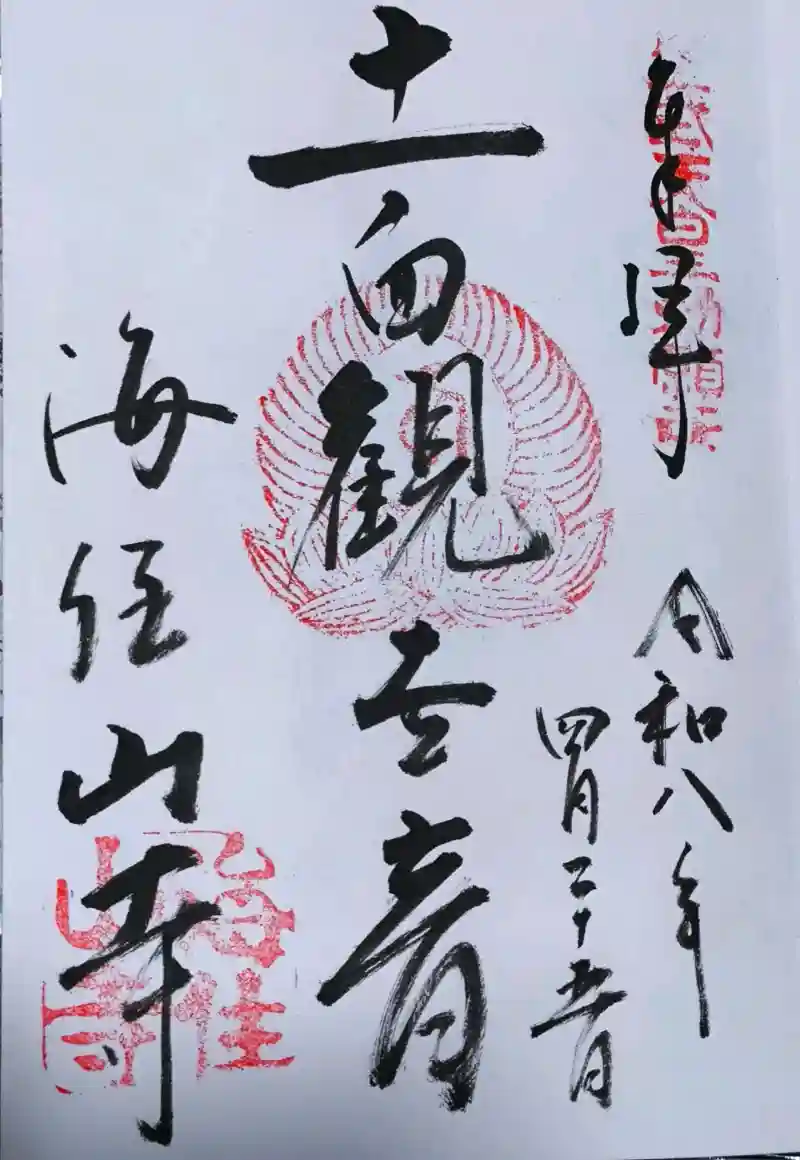 奉拝
令和八年
四月二十五日
十一面観世音
海住山寺
海住山寺